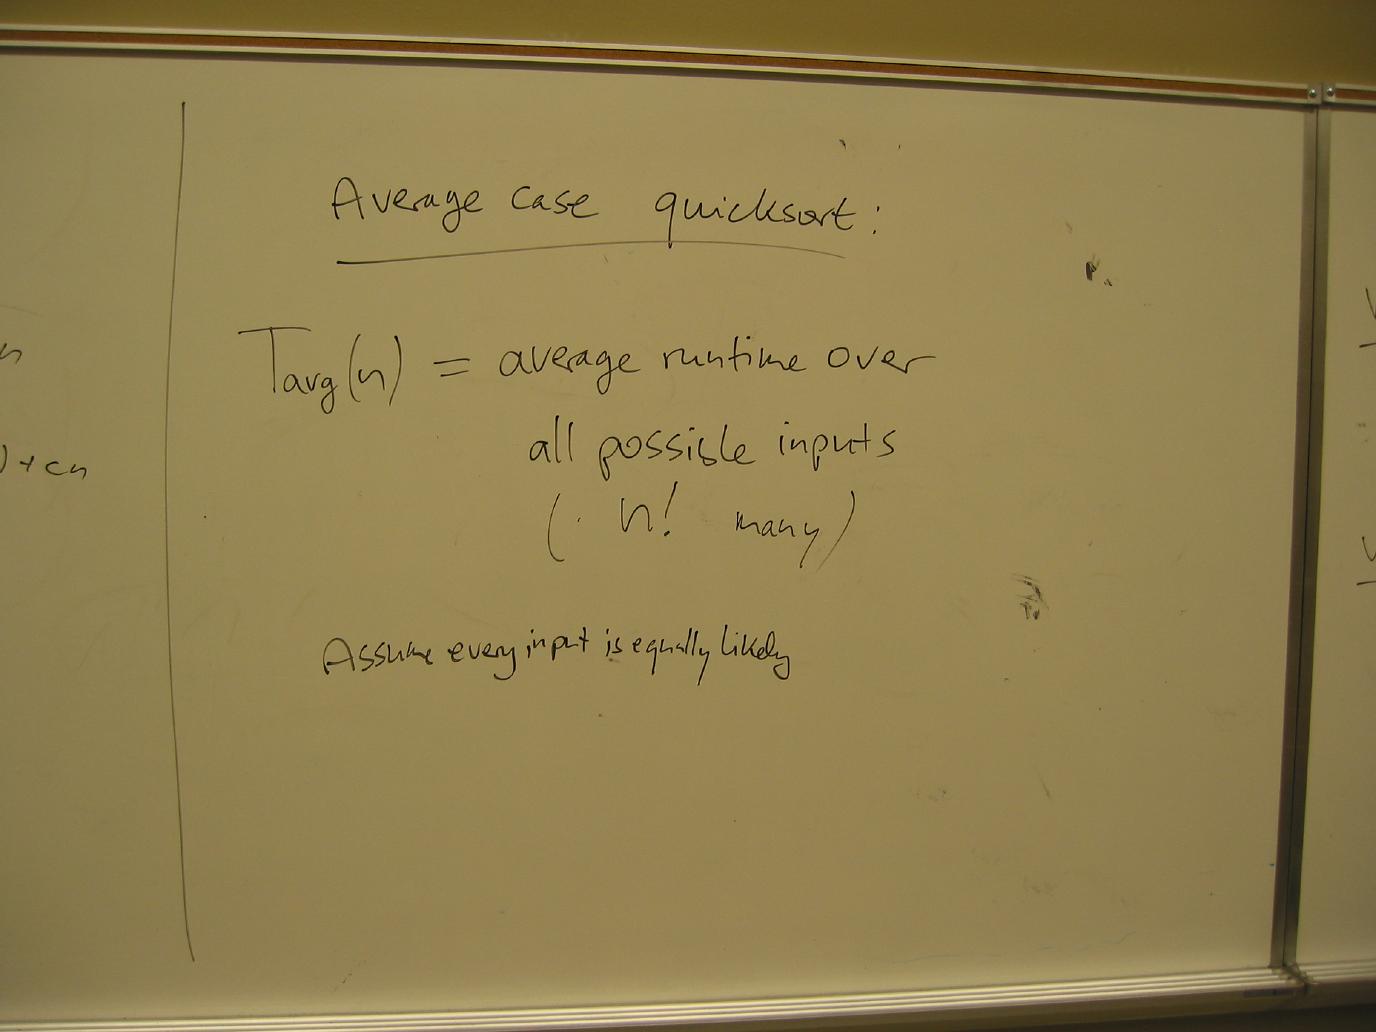 n
) + cn
Average case quicksort:
Tavg(n) = average runtime over
all possible inputs
( n! many)
Assume every input is equally likely